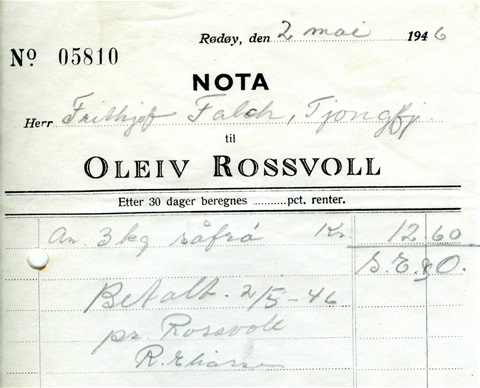 Rødøy, den 2 mai 1946
Nº 05810
NOTA
Herr Frithjof Falch, Tjongfj.
til
OLEIV ROSSVOLL
Etter 30 dager beregnes ..........pct. renter.
An. 3 kg såfrö Kr 12 60
S.E.&O.
Betalt. 2/5-46
pr Rossvoll